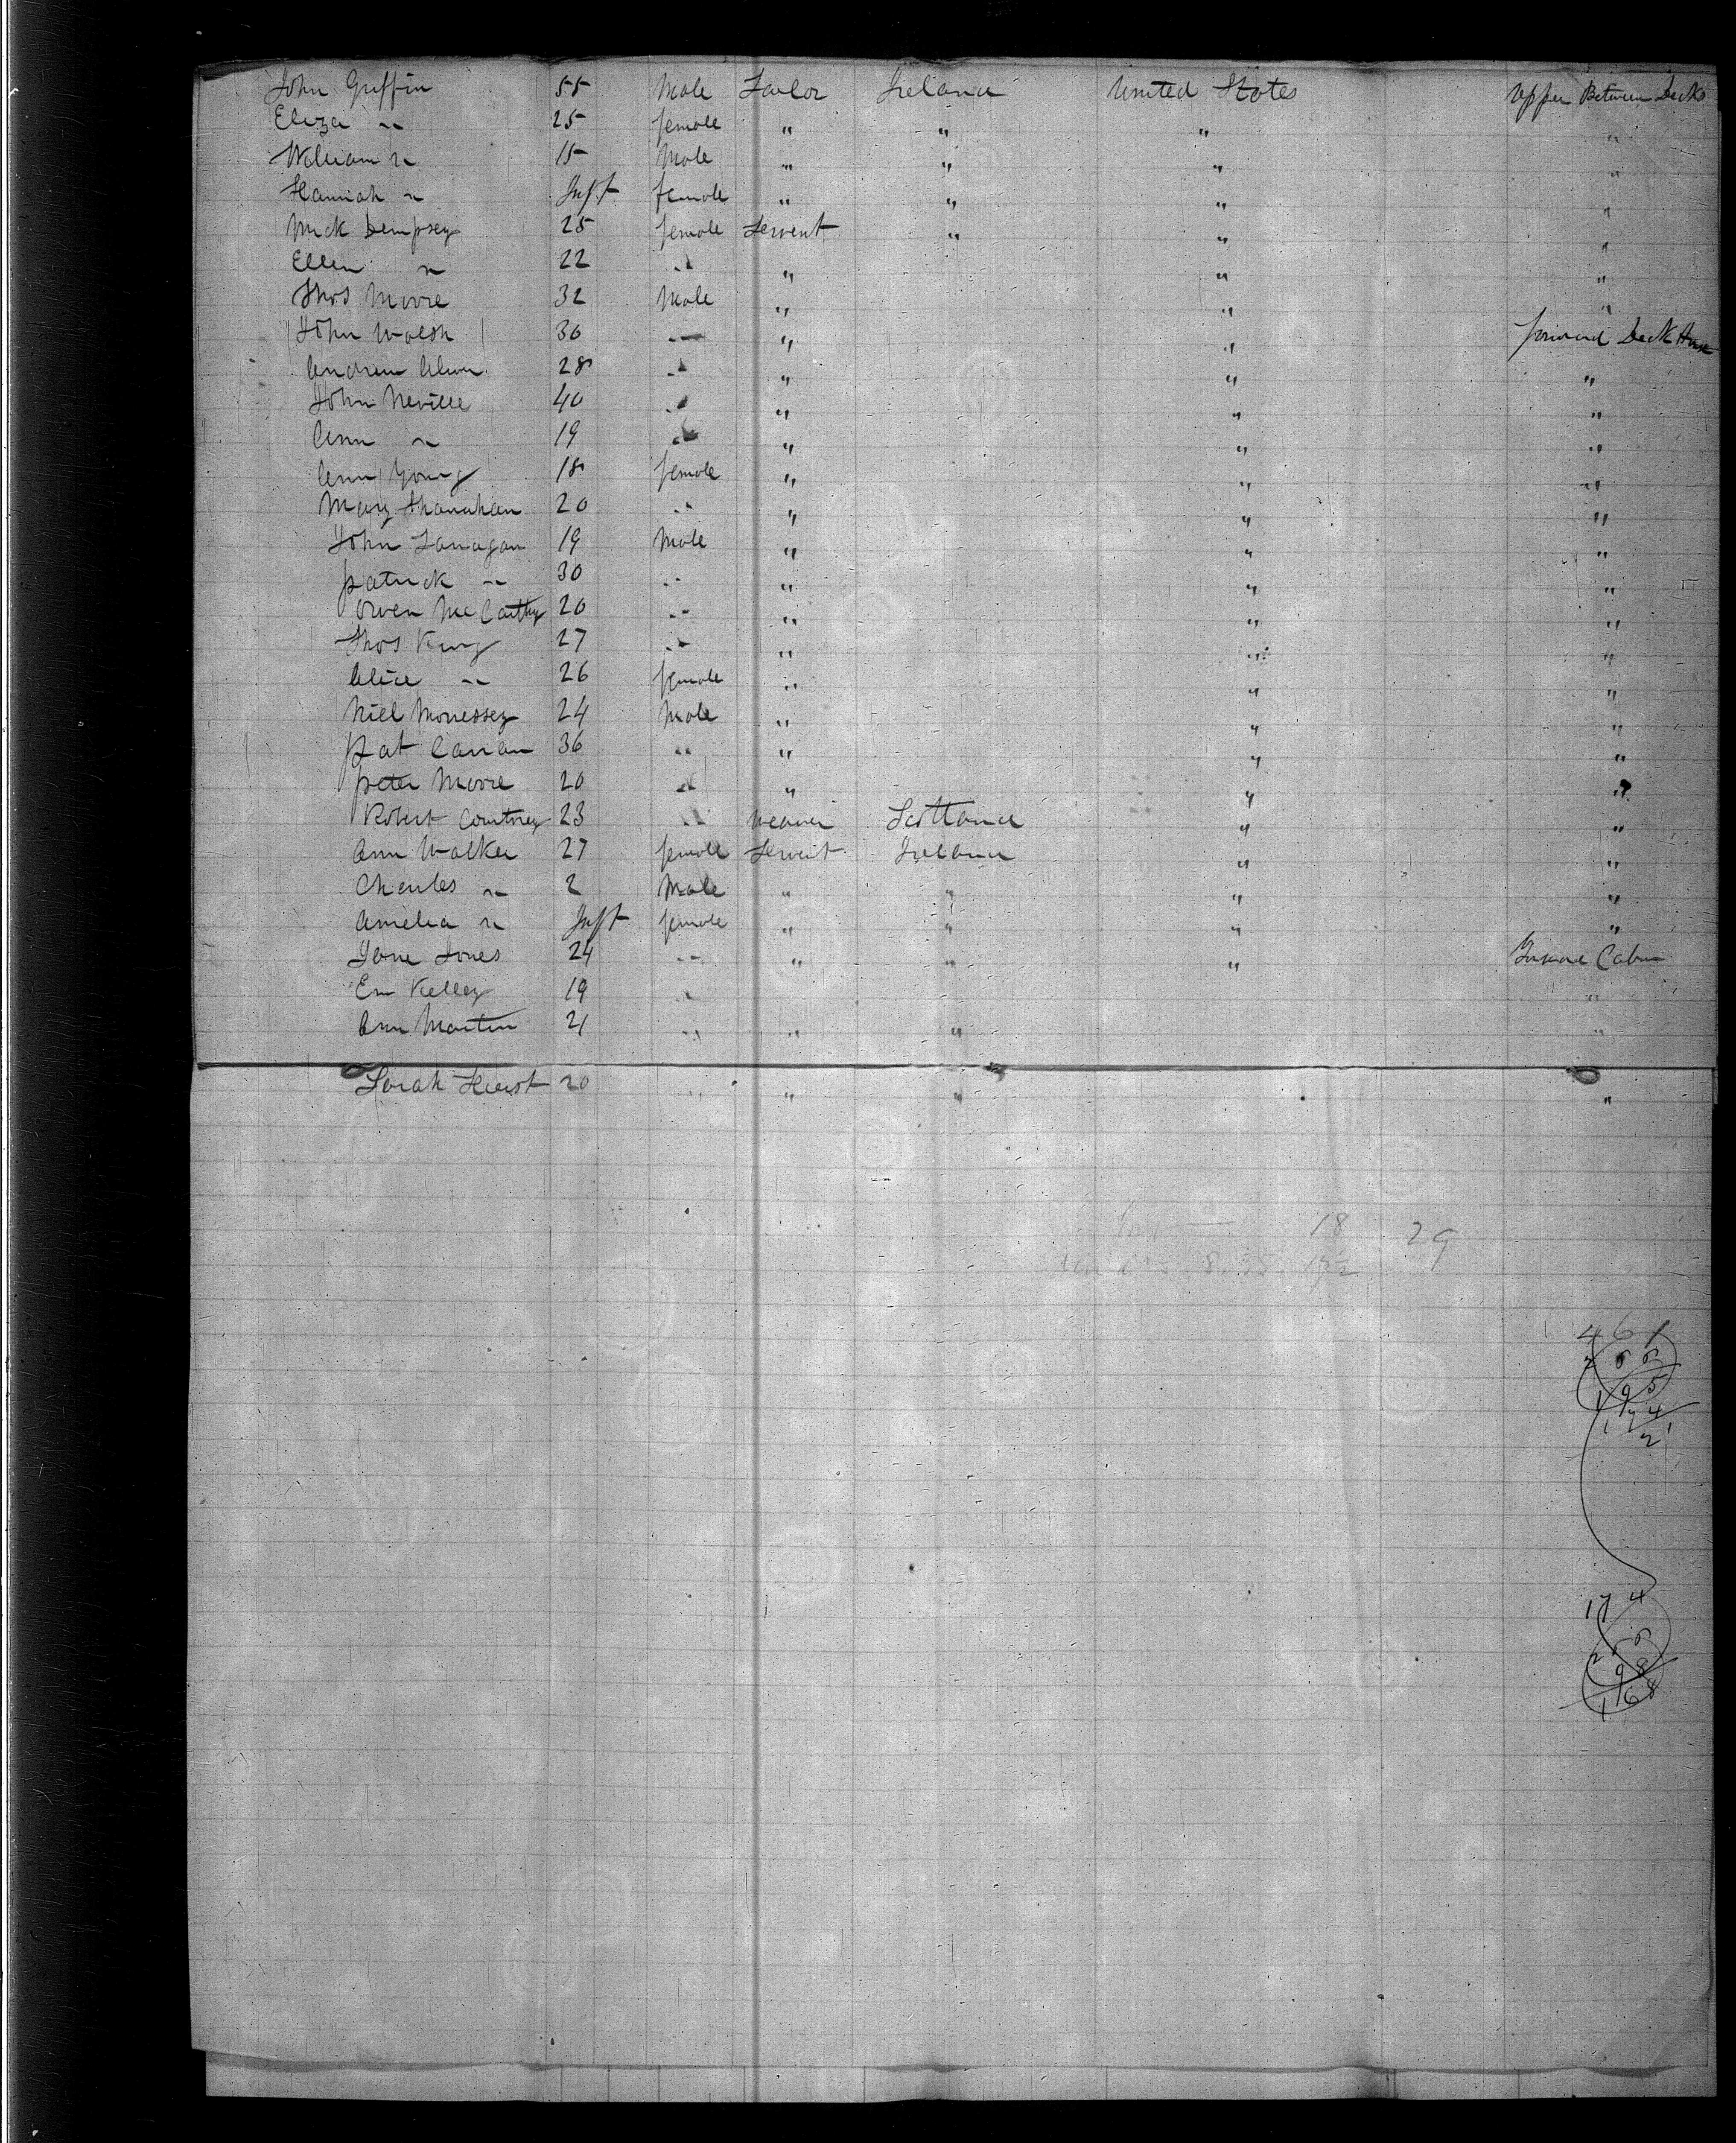 John Griffin 55 Male Tailor Ireland United States Upper Between Decks
Eliza " 25 female " " " "
William " 15 Male " " " "
Hannah " Inft female " " " "
Mick Dempsey 25 female Servent " " "
Ellen " 22 " " " "
Thos Moore 32 Male " " "
John Walsh 30 " " " forward Deck House
Andrew 28 " " " "
John Neville 40 " " " "
Ann " 19 " " " "
Ann Young 18 female " " "
Mary Shanahan 20 " " " "
John Lanagan 19 Male " " "
patrick " 30 " " " "
Owen McCarthy 20 " " " "
Thos King 27 " " " "
Alice " 26 female " " "
Niel 24 Male " " "
Pat 36 " " " "
peter Moore 20 " " " "
Robert Courtney 23 " Weaver Scotland " "
Ann Walker 27 female Servent Ireland " "
Charles " 2 Male " " " "
Amelia " Inft female " " " "
Jane Jones 24 " " " " Cabin
Kelley 19 " "
Ann Martin 21 " " " "
Sarah Hurst 20 " " " "
18 29
8.35 17½
461
195
174
174
98
168